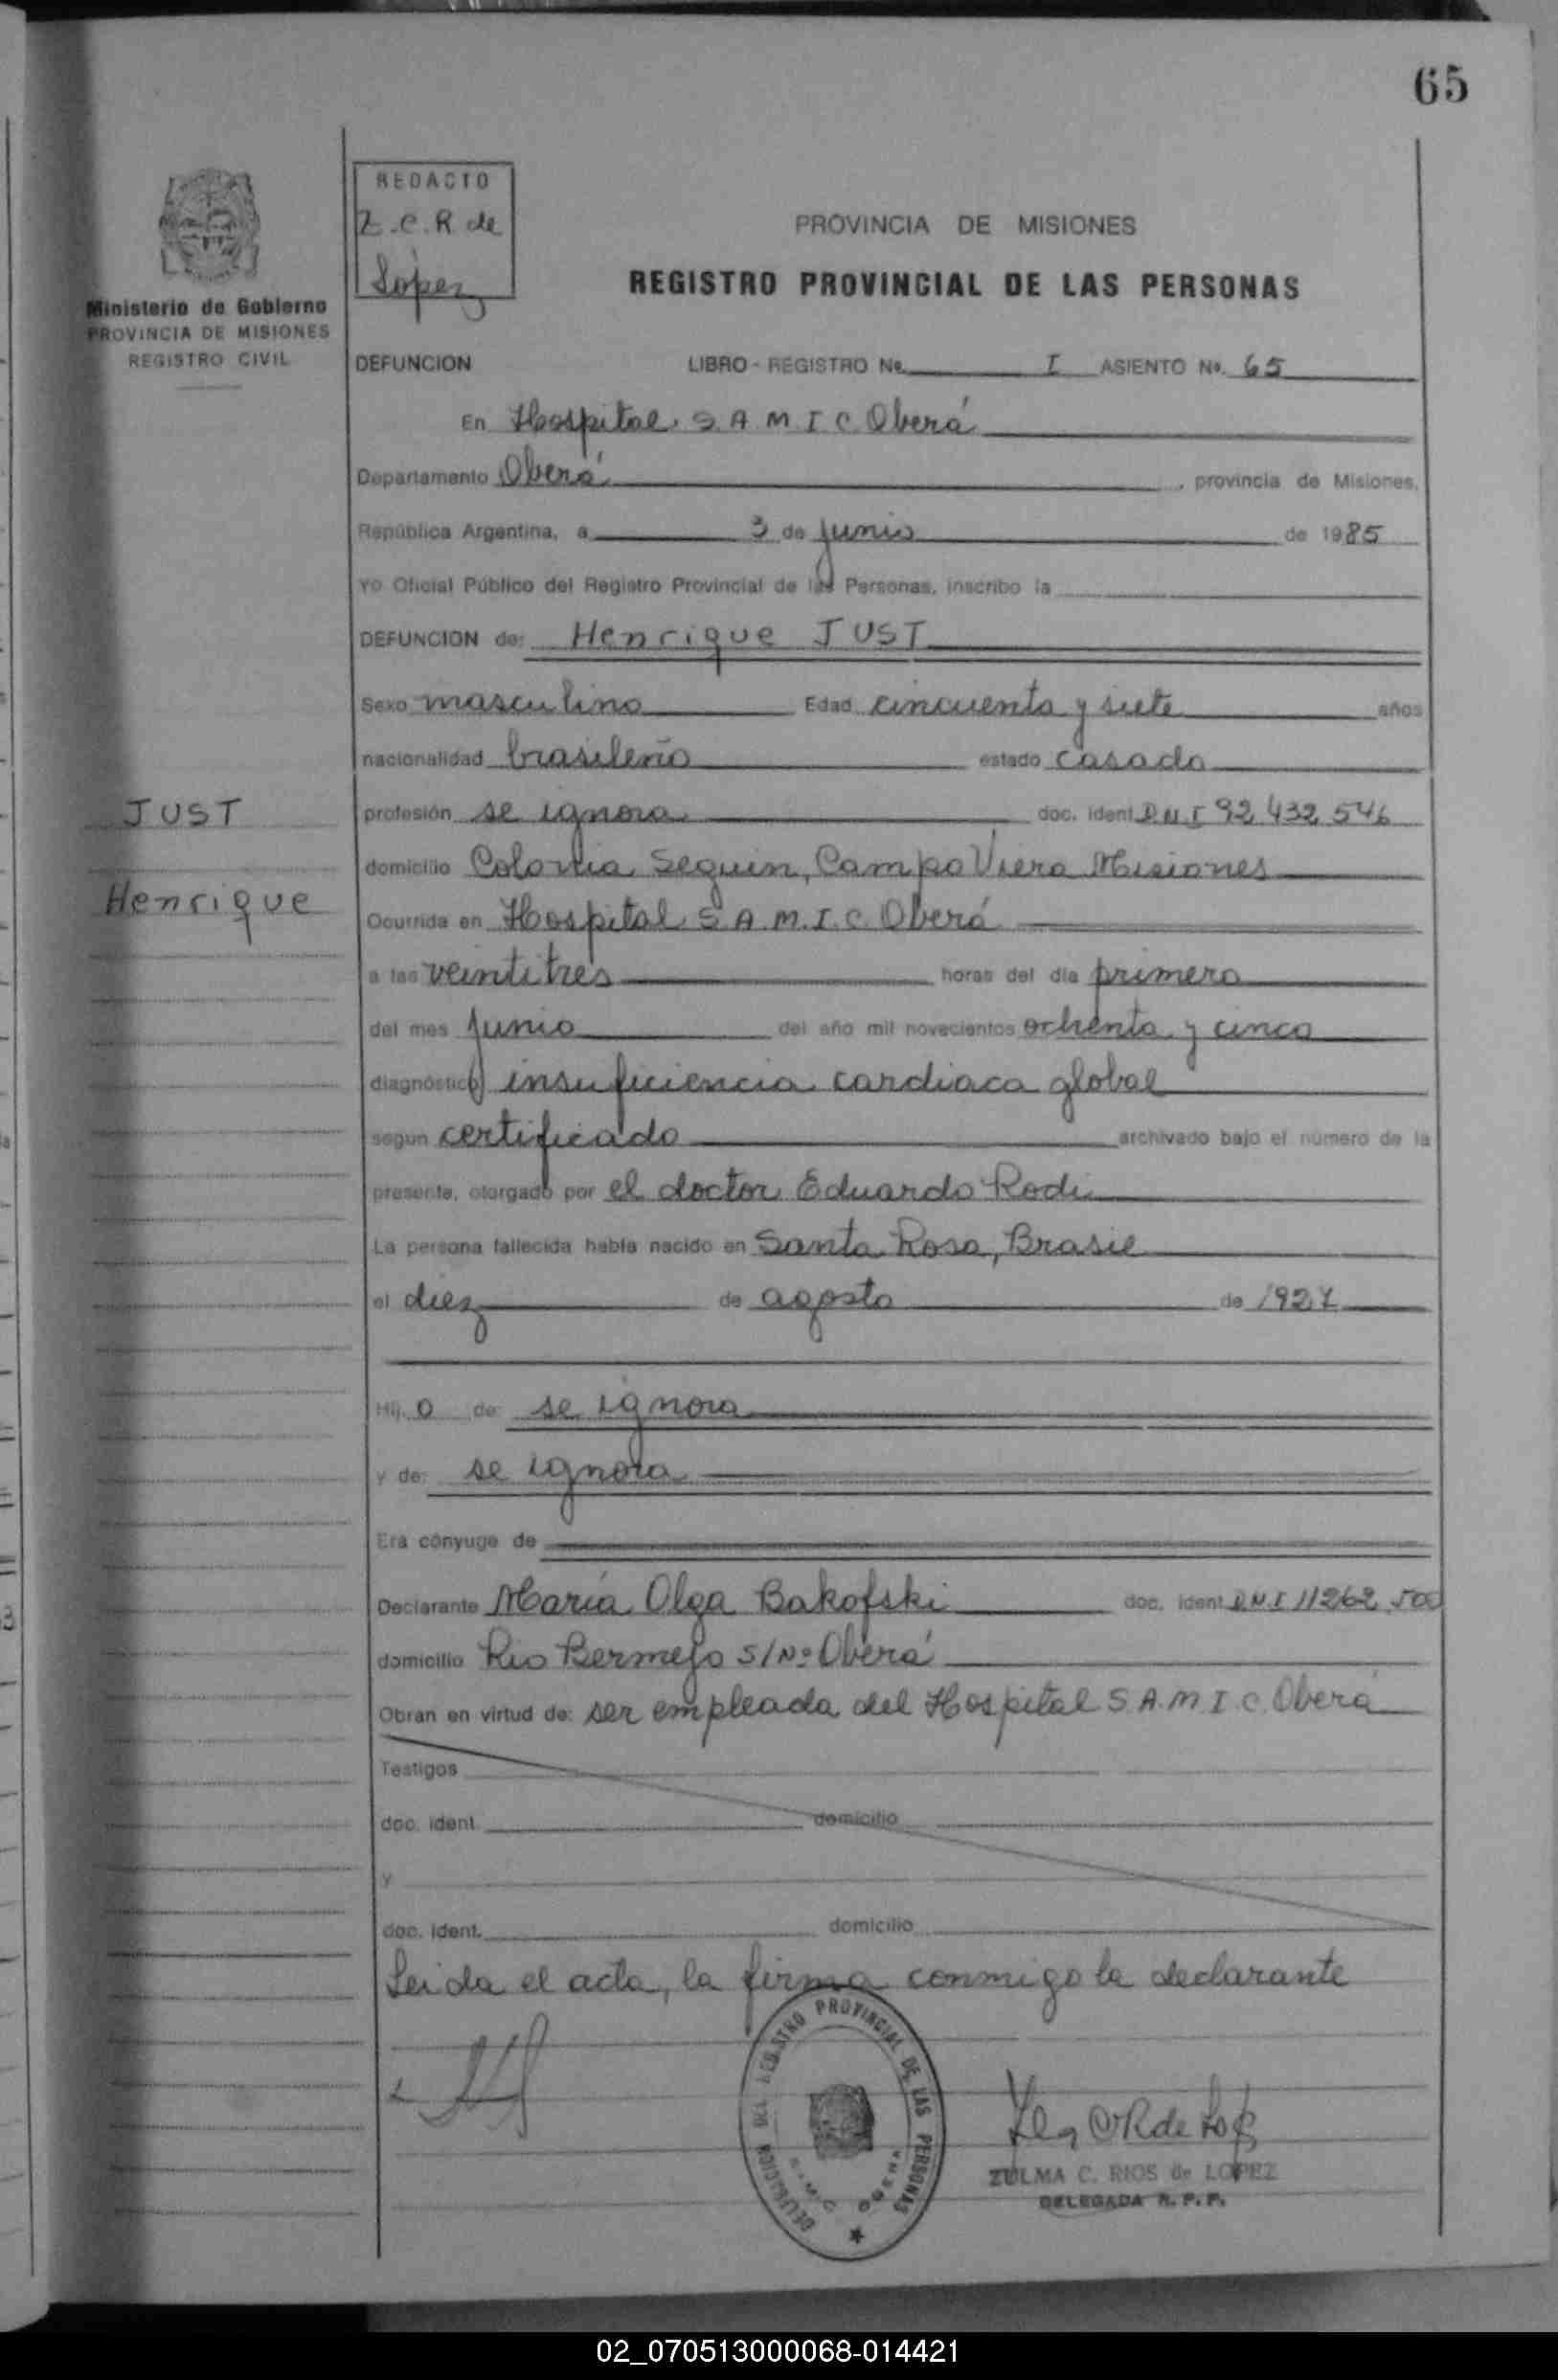 65
REDACTO
Z.C.R de
López
PROVINCIA DE MISIONES
REGISTRO PROVINCIAL DE LAS PERSONAS
Ministerio de Gobierno
PROVINCIA DE MISIONES
REGISTRO CIVIL
DEFUNCION LIBRO - REGISTRO No. I ASIENTO No. 65
En Hospital S.A.M.I.C. Oberá
Departamento Oberá, provincia de Misiones,
República Argentina, a 3 de junio de 1985
Yo Oficial Público del Registro Provincial de las Personas, inscribo la
DEFUNCION de: Henrique JUST
Sexo masculino Edad cincuenta y siete años
nacionalidad brasileño estado casado
JUST
profesión se ignora doc. ident D.N.I 92.432.546
domicilio Colonia Seguin, Campo Viera Misiones
Henrique
Ocurrida en Hospital S.A.M.I.C. Oberá
a las veintitres horas del día primero
del mes junio del año mil novecientos ochenta y cinco
diagnóstico insuficiencia cardiaca global
según certificado archivado bajo el número de la
presente, otorgado por el doctor Eduardo Rodi
La persona fallecida había nacido en Santa Rosa, Brasil
el diez de agosto de 1927
Hij o de se ignora
y de: se ignora
Era cónyuge de
Declarante María Olga Bakofski doc. ident D.N.I 11262.500
domicilio Rio Bermejo S/Nº Oberá
Obran en virtud de: ser empleada del Hospital S.A.M.I.C. Oberá
Testigos
doc. ident. domicilio
y
doc. ident. domicilio
Leida el acta, la firma conmigo la declarante
DELEGACION DEL REGISTRO PROVINCIAL DE LAS PERSONAS
ZULMA C. RIOS de LOPEZ
DELEGADA R.P.P.
02_070513000068-014421